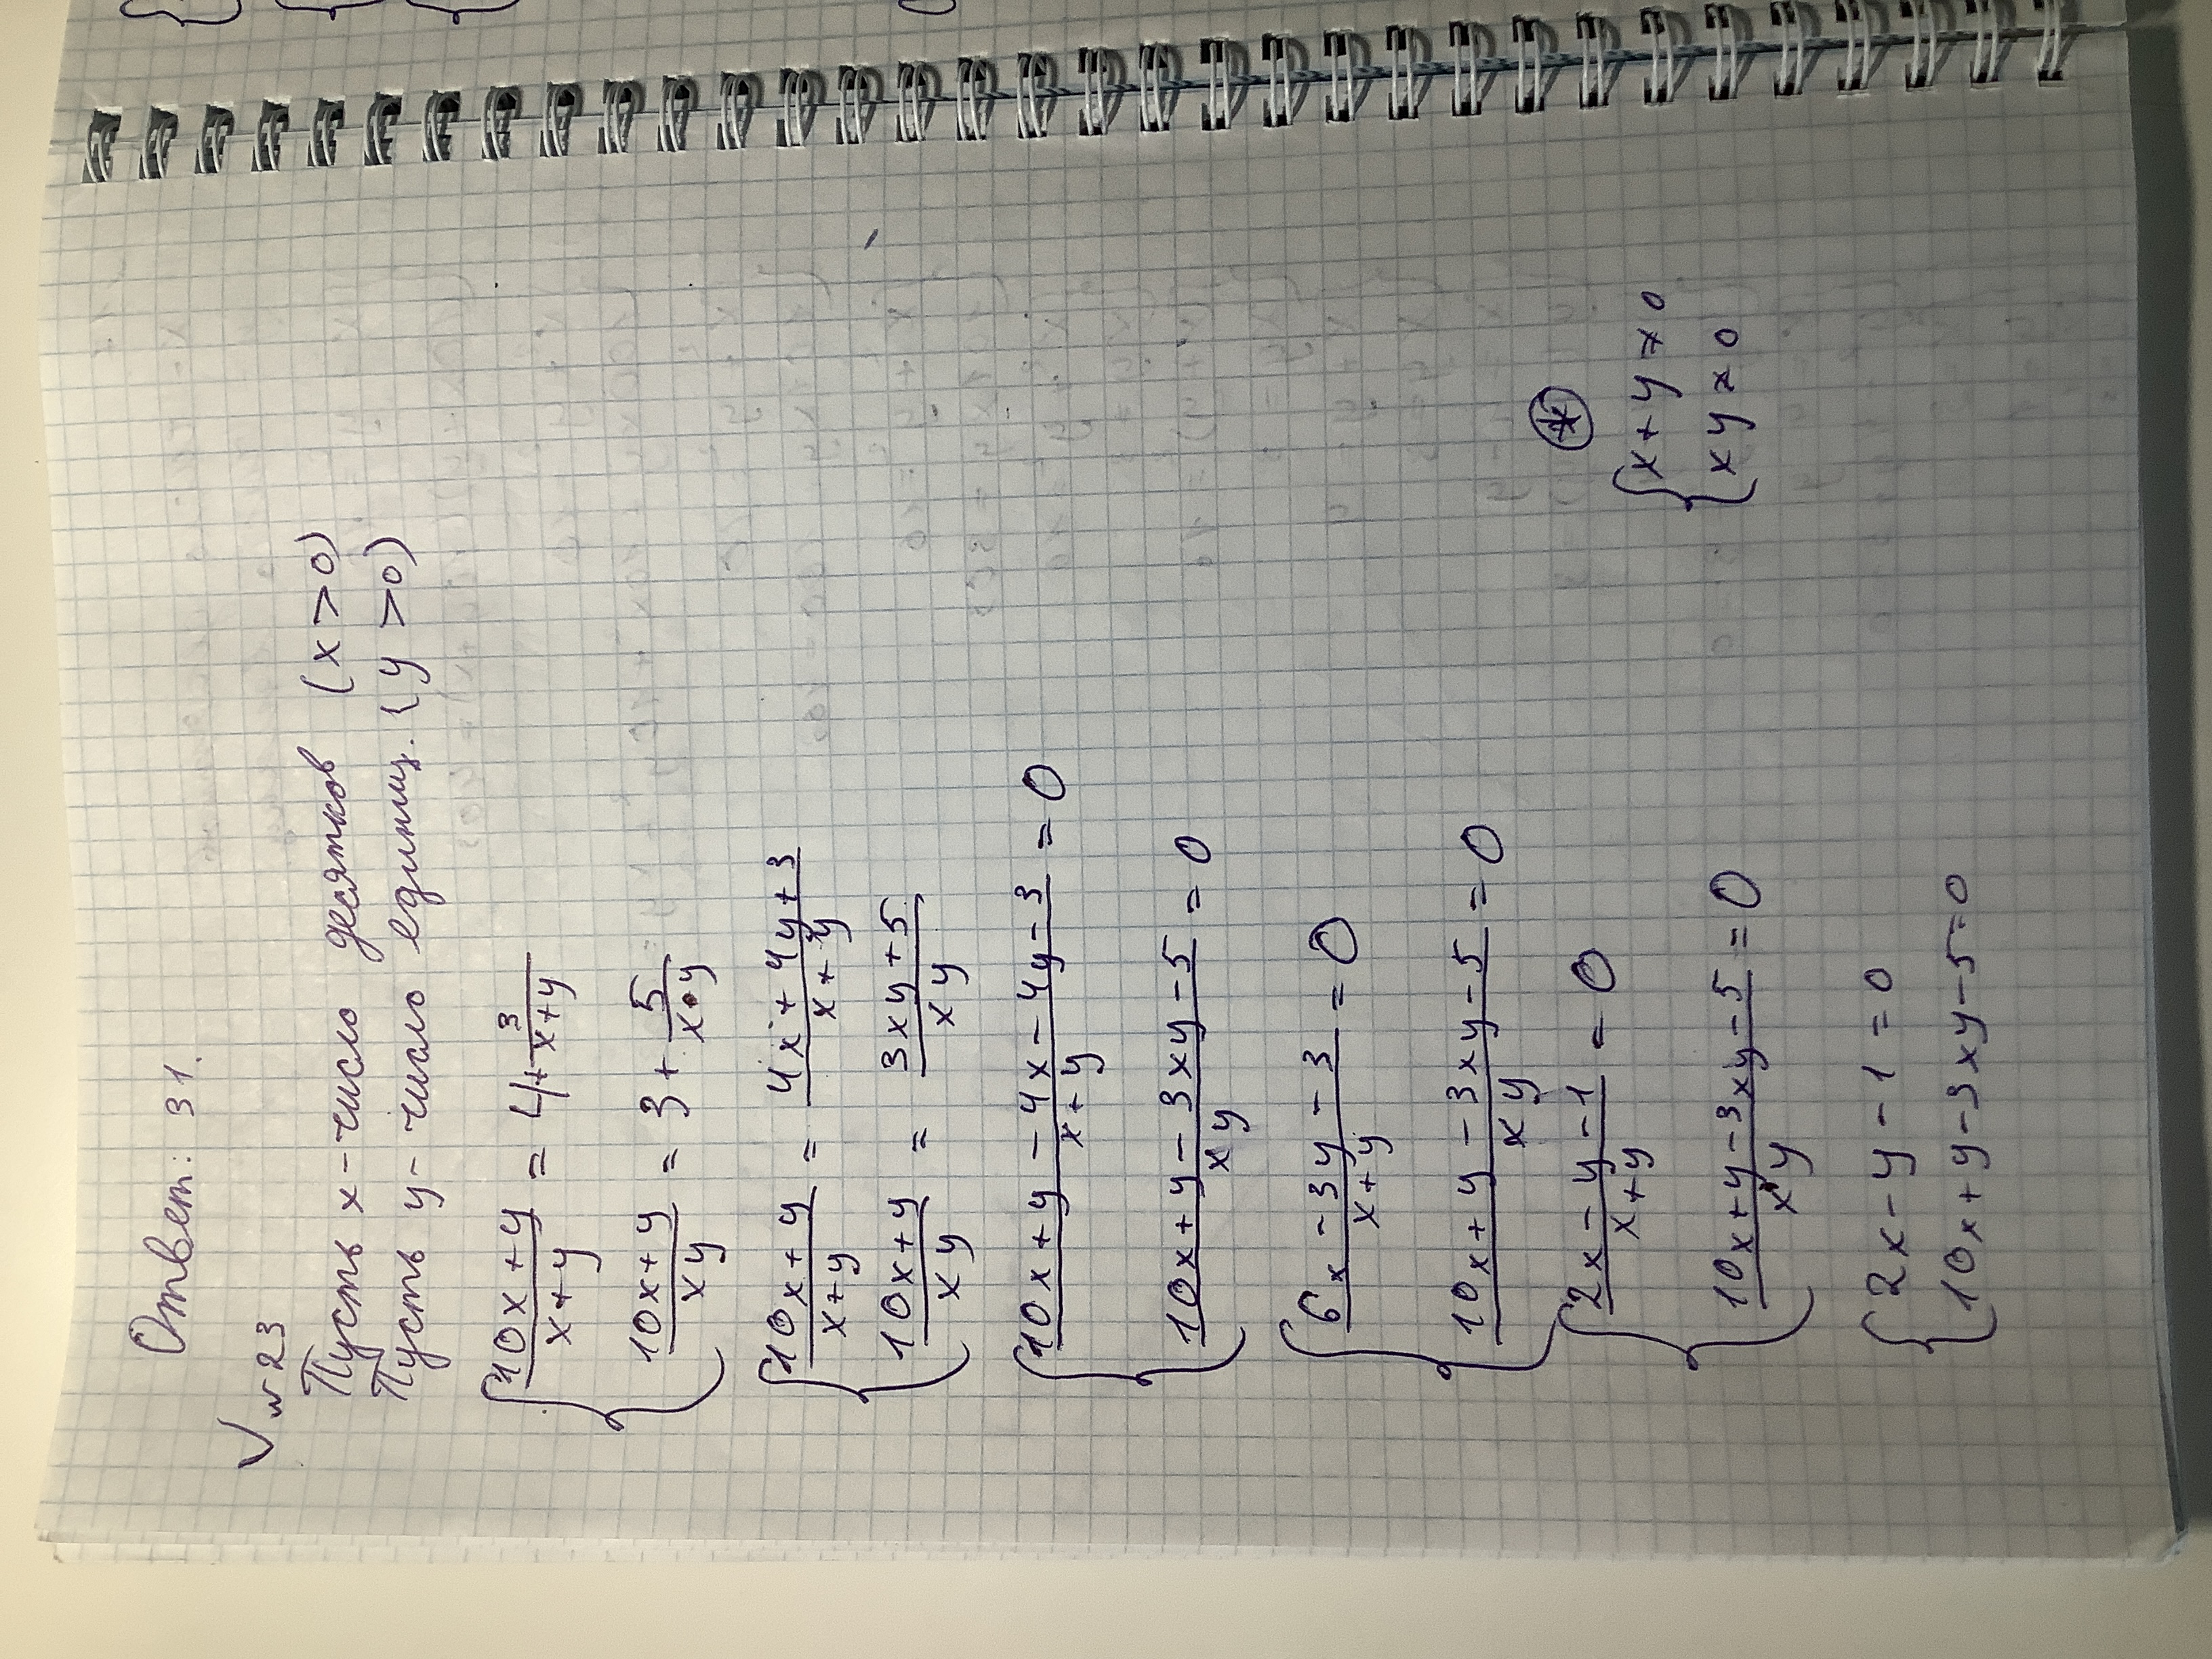 Ответ: 31.
√ №23
Пусть x - число десятков (x > 0)
Пусть y - число единиц. (y > 0)
{ (10x + y)/(x + y) = 4 + 3/(x + y)
(10x + y)/(xy) = 3 + 5/(x • y)
{ (10x + y)/(x + y) = (4x + 4y + 3)/(x + y)
(10x + y)/(xy) = (3xy + 5)/(xy)
{ (10x + y - 4x - 4y - 3)/(x + y) = 0
(10x + y - 3xy - 5)/(xy) = 0
{ (6x - 3y - 3)/(x + y) = 0
(10x + y - 3xy - 5)/(xy) = 0
{ (2x - y - 1)/(x + y) = 0
(10x + y - 3xy - 5)/(xy) = 0
(*)
{ x + y ≠ 0
xy ≠ 0
{ 2x - y - 1 = 0
10x + y - 3xy - 5 = 0